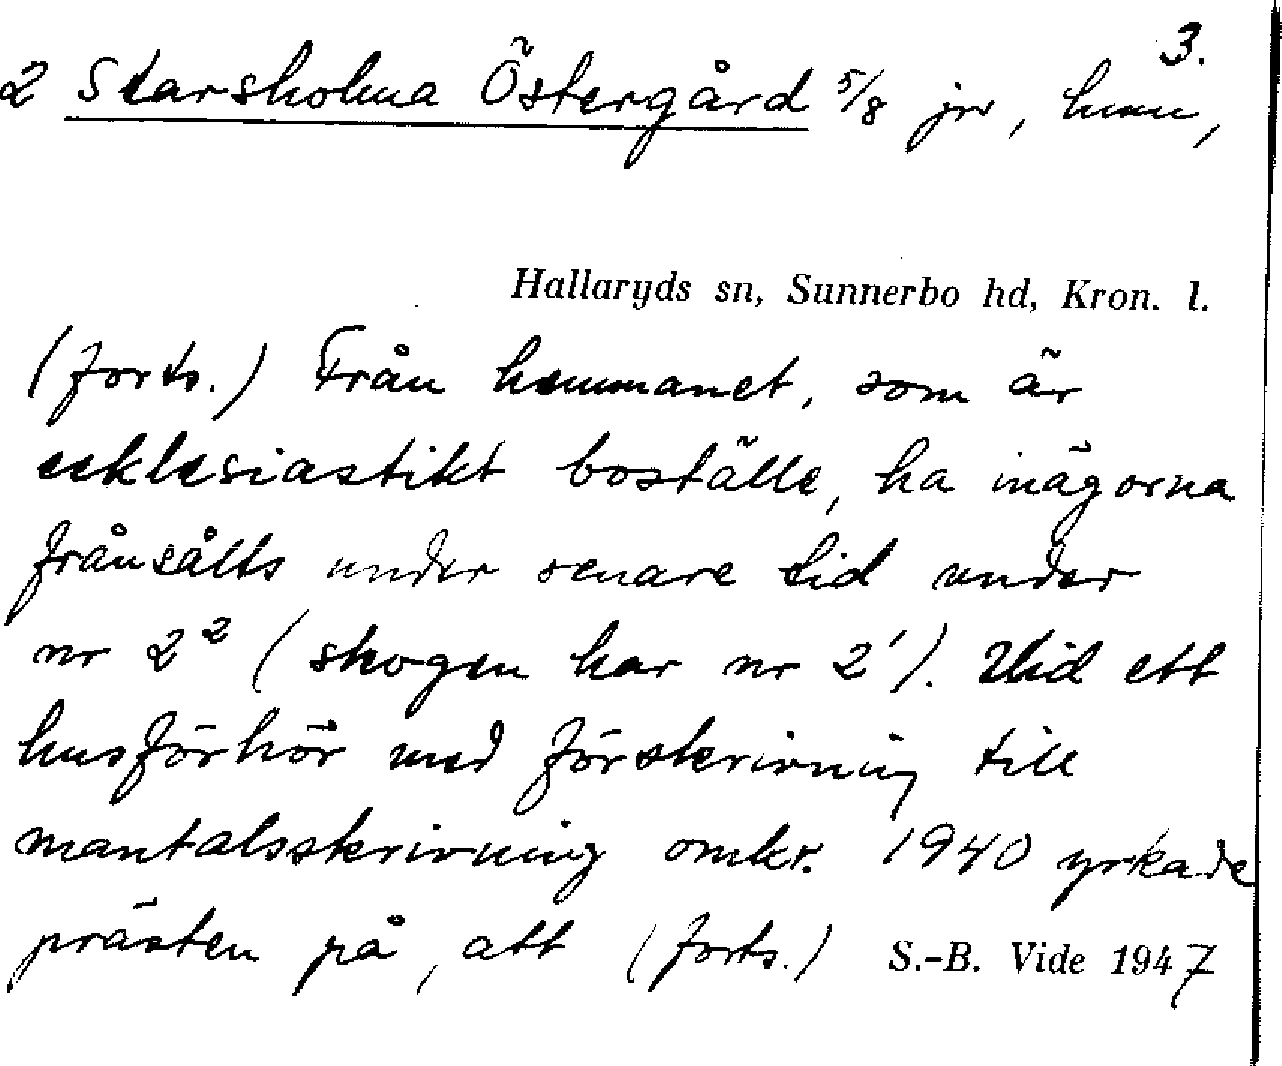 3.
2 Starsholma Östergård 5/8 jnr, hmn,
Hallaryds sn, Sunnerbo hd, Kron. l.
(forts.) Från hemmanet, som är
ecklesiastikt boställe, ha inägorna
frånsålts under senare tid under
nr 2² (skogen har nr 2¹). Vid ett
husförhör med förskrivning till
mantalsskrivning omkr. 1940 yrkade
prästen på, att (forts.) S.-B. Vide 1947